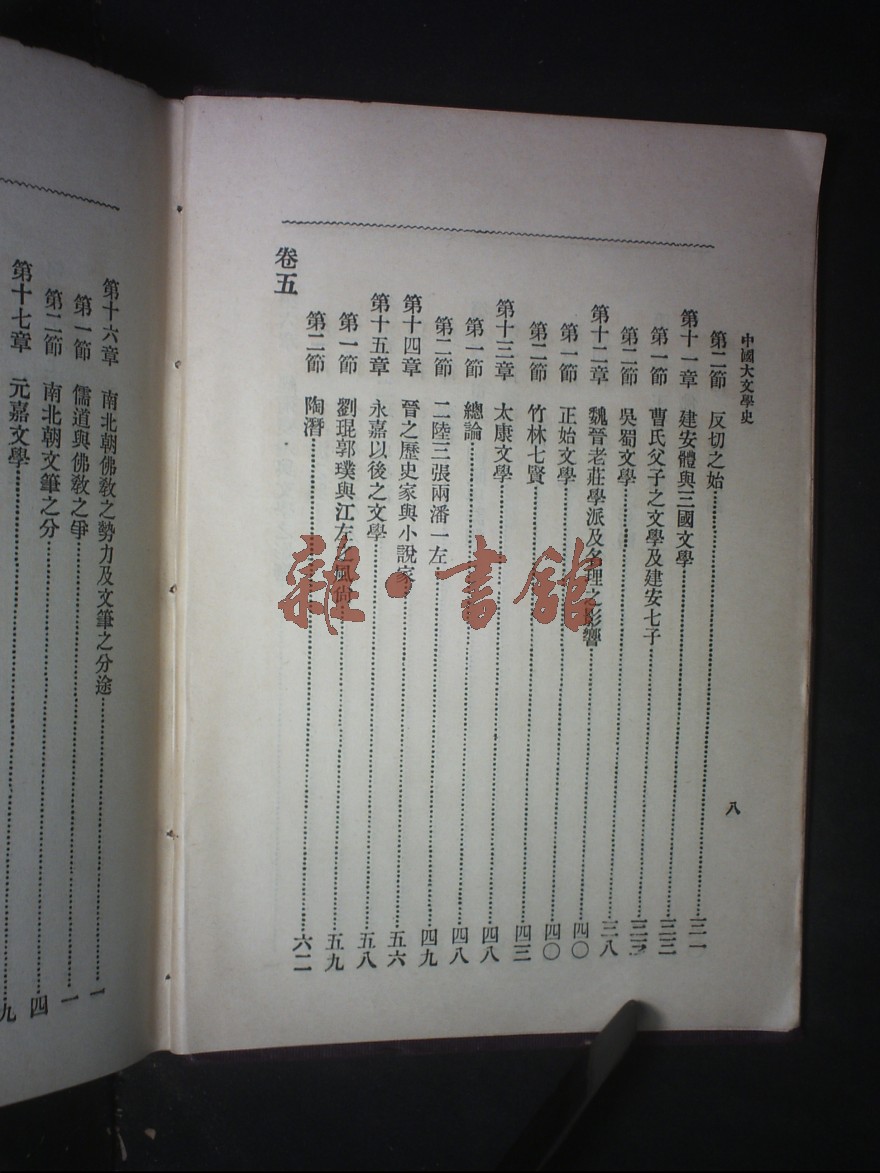 中國大文學史
八
第二節 反切之始 三一
第十一章 建安體與三國文學 三三
第一節 曹氏父子之文學及建安七子 三三
第二節 吳蜀文學 三八
第十二章 魏晉老莊學派及名理之影響 四〇
第一節 正始文學 四〇
第二節 竹林七賢 四三
第十三章 太康文學 四八
第一節 總論 四八
第二節 二陸三張兩潘一左 四九
第十四章 晉之歷史家與小說家 五六
第十五章 永嘉以後之文學 五八
第一節 劉琨郭璞與江左之風尚 五九
第二節 陶潛 六二
卷五
第十六章 南北朝佛敎之勢力及文筆之分途 一
第一節 儒道與佛敎之爭 一
第二節 南北朝文筆之分 四
第十七章 元嘉文學 九
雜·書館